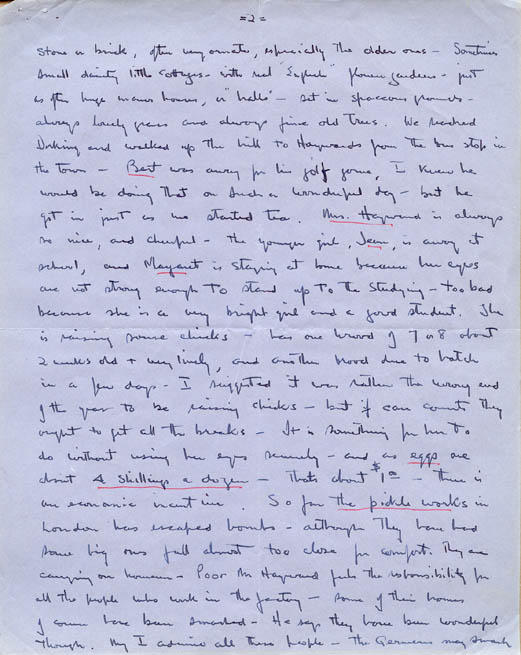 =2=
stone or brick, often very ornate, especially the older ones - Sometimes
small dainty little cottages - with real "English" flower gardens - just
as often huge manor houses, or "halls" - set in spacious grounds -
always lovely grass and always fine old trees. We reached
Dorking and walked up the hill to Haywards from the bus stop in
the town - Bert was away for his golf game, I knew he
would be doing that on such a wonderful day - but he
got in just as we started tea. Mrs. Hayward is always
so nice, and cheerful - the younger girl, Jean, is away at
school, and Margaret is staying at home because her eyes
are not strong enough to stand up to the studying - too bad
because she is a very bright girl and a good student. She
is raising some chicks - has one brood of 7 or 8 about
2 weeks old + very lively, and another brood due to hatch
in a few days - I suggested it was rather the wrong end
of the year to be raising chicks - but if care counts they
ought to get all the breaks - It is something for her to
do without using her eyes - and as eggs are
about 4 shillings a dozen - thats about $1.00 - there is
an economic incentive. So far the pickle works in
London has escaped bombs - although they have had
some big ones fall almost too close for comfort. They are
carrying on however - Poor Mr Hayward feels the responsibility for
all the people who work in the factory - some of their homes
of course have been smashed - He says they have been wonderful
though. My I admire all these people - the Germans may smash